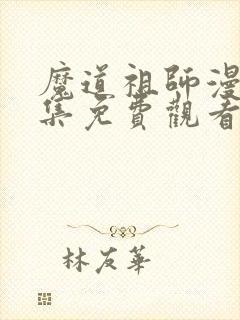 魔道祖師漫
集免費觀看
林友華